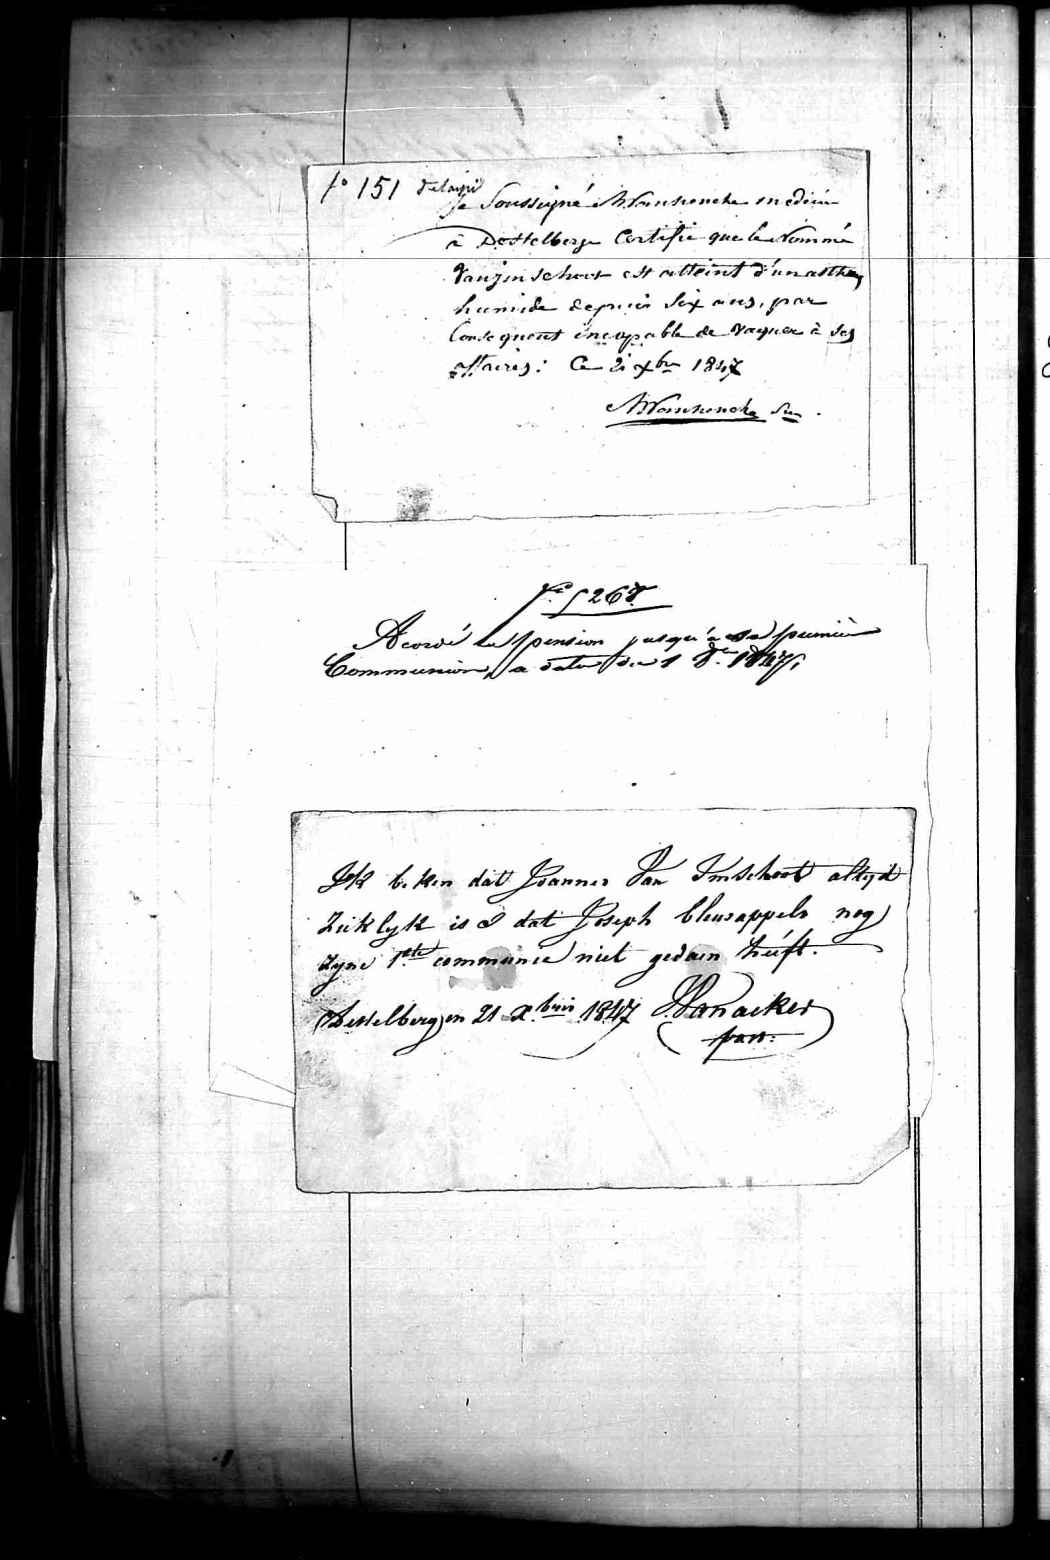 fo 151
Je Soussigné Médecin
à Destelberge Certifie que le Nommé
Vanjmschoot est atteint d'un asthme
humide depuis Six ans, par
Consequent incapable de vaquer à Ses
affaires: Ce 21 xbre 1847
fo 526 vo
Acordé la pension jusqu'a sa premiere
Communion, a dater du 1 Xe 1847,
Ik beken dat Joannes Van Imschoot altyd
Zieklyk is & dat Joseph bleusappels nog
Zyne 1ste communie niet gedaen heeft.
Destelbergen 21 Xbris 1847 Vanacker
past: